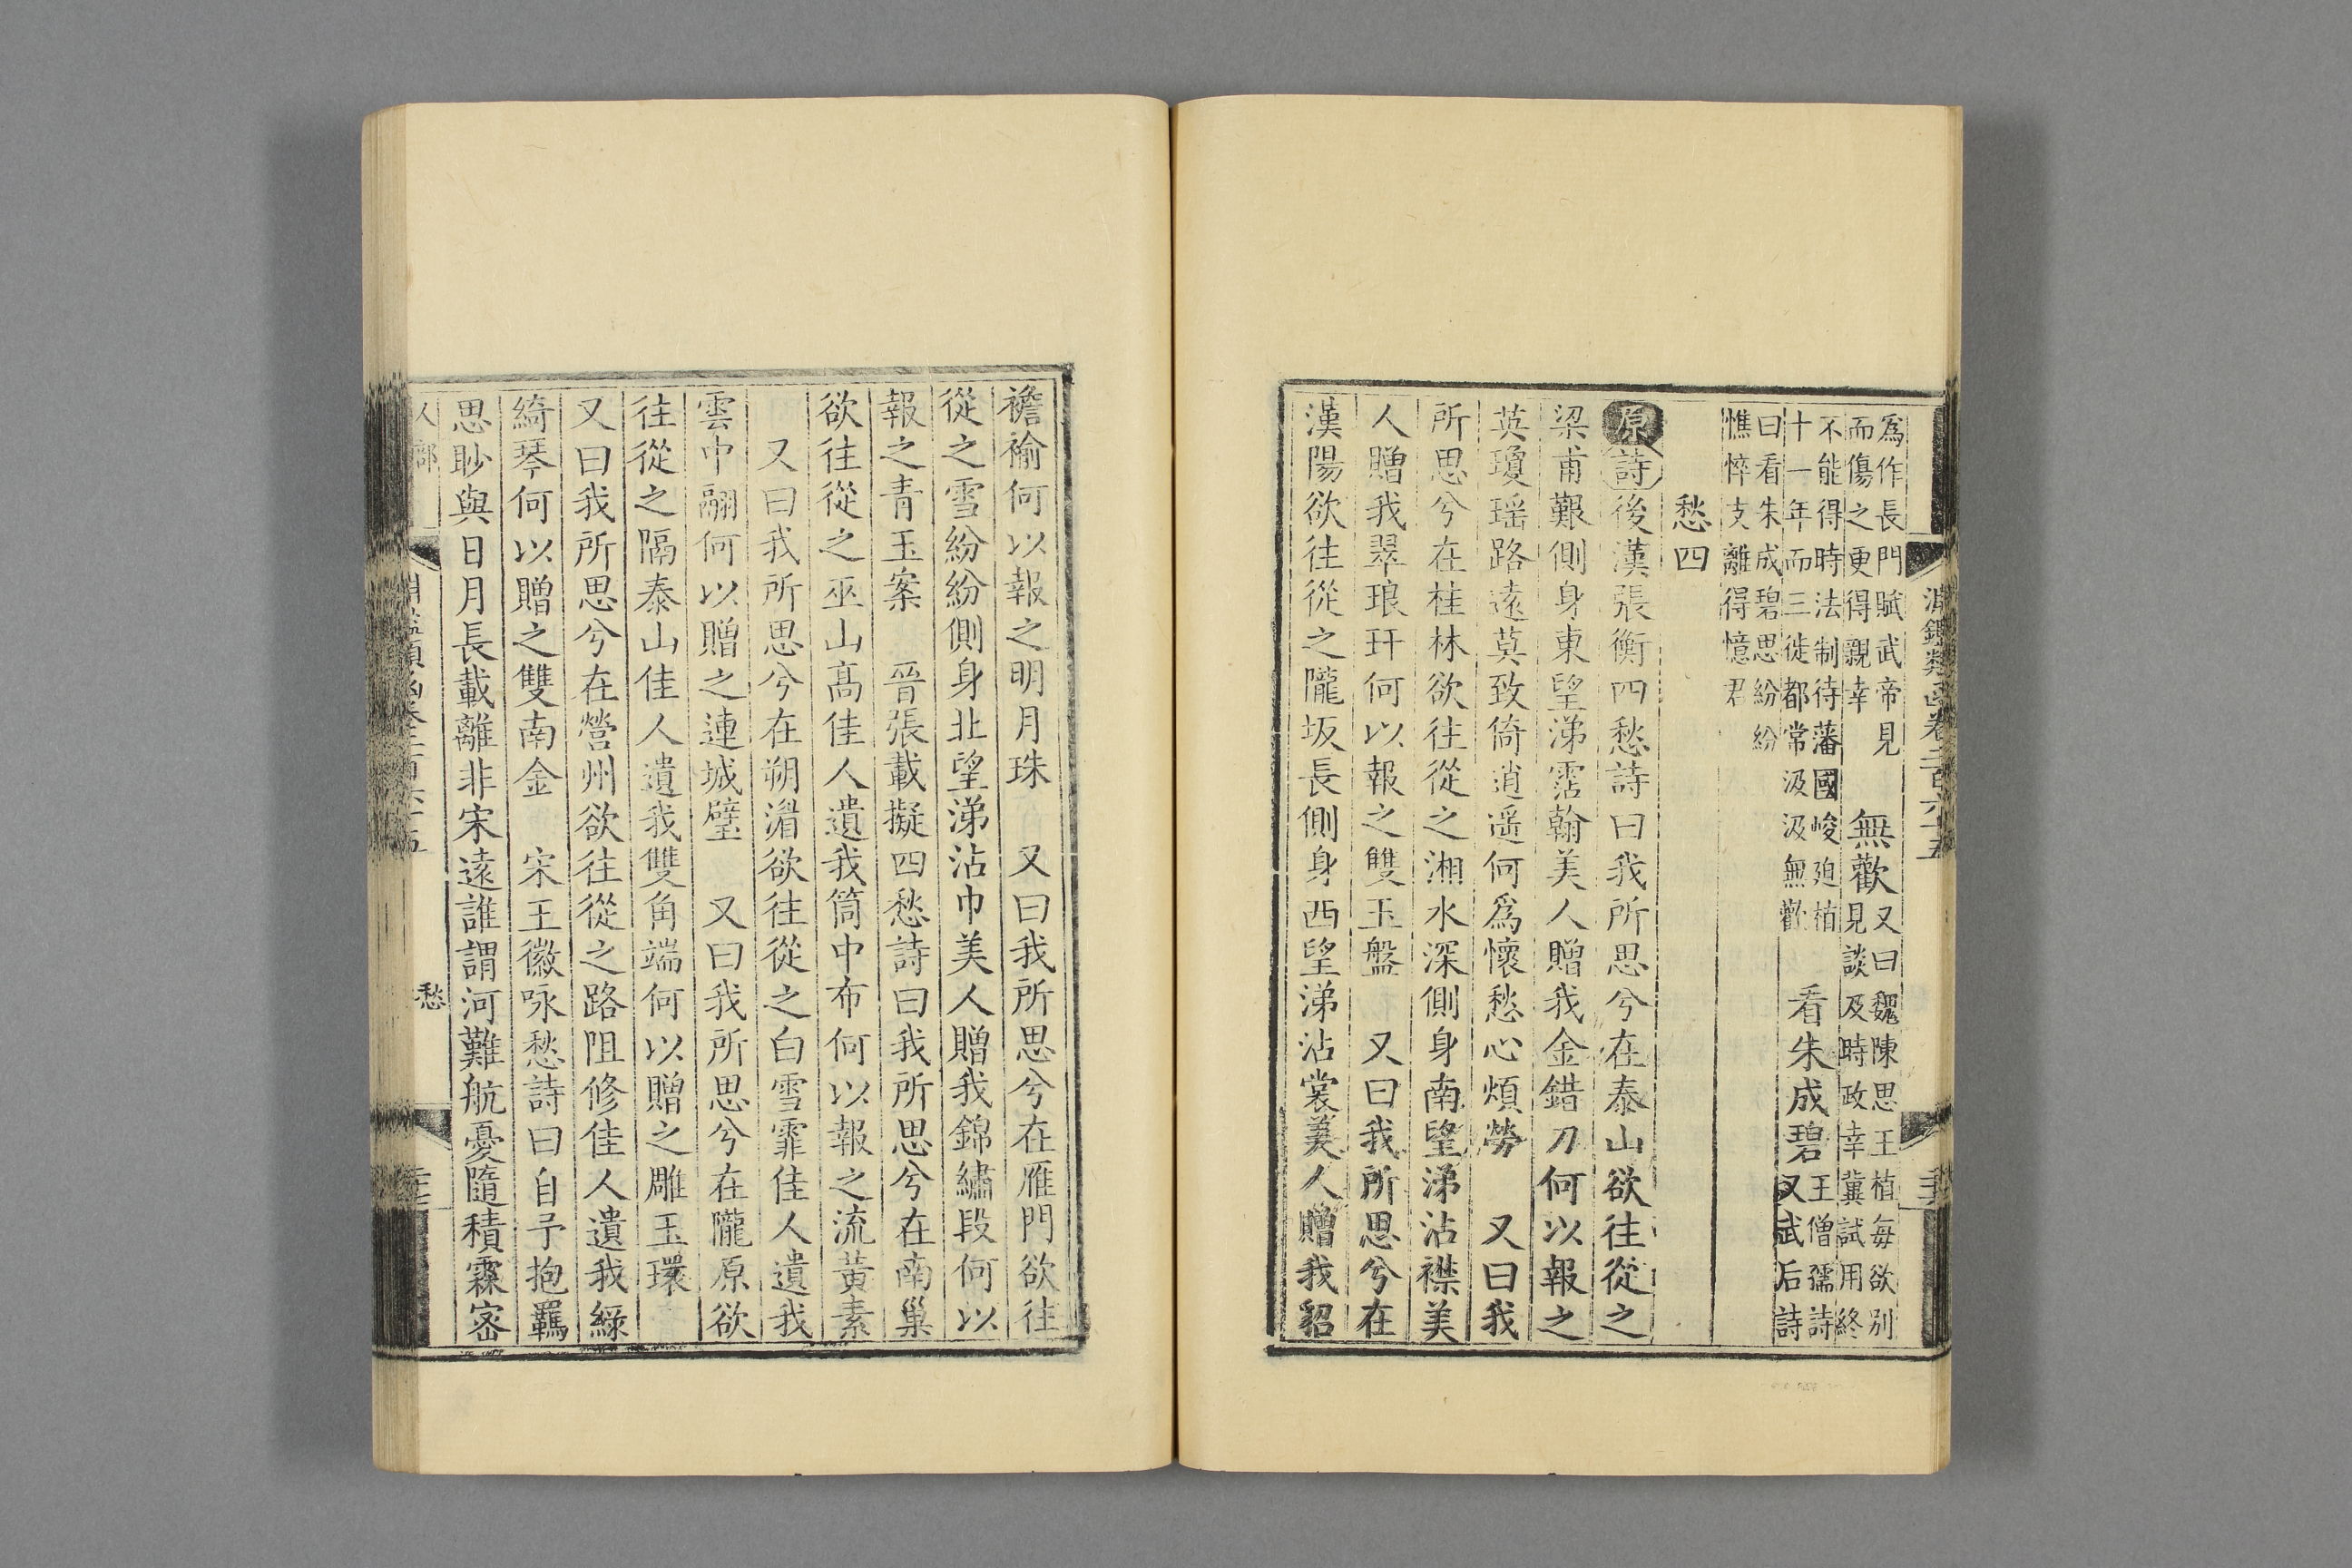 淵鑑類函卷二百六十五
爲作長門賦武帝見
而傷之更得親幸
無歡
又曰魏陳思王植每欲別
見談及時政幸冀試用終
不能得時法制待藩國峻廹植
十一年而三徙都常汲汲無歡
看朱成碧
王僧孺詩
又武后詩
曰看朱成碧思紛紛
憔悴支離得憶君
愁四
原詩後漢張衡四愁詩曰我所思兮在泰山欲往從之
梁甫艱側身東望涕霑翰美人贈我金錯刀何以報之
英瓊瑤路遠莫致倚逍遥何爲懷愁心煩勞 又曰我
所思兮在桂林欲往從之湘水深側身南望涕沾襟美
人贈我翠琅玕何以報之雙玉盤 又曰我所思兮在
漢陽欲往從之隴坂長側身西望涕沾裳美人贈我貂
襜褕何以報之明月珠 又曰我所思兮在雁門欲往
從之雪紛紛側身北望涕沾巾美人贈我錦繡段何以
報之青玉案 晉張載擬四愁詩曰我所思兮在南巢
欲往從之巫山高佳人遺我筒中布何以報之流黃素
又曰我所思兮在朔湄欲往從之白雪霏佳人遺我
雲中翮何以贈之連城璧 又曰我所思兮在隴原欲
往從之隔泰山佳人遺我雙角端何以贈之雕玉環
又曰我所思兮在營州欲往從之路阻修佳人遺我綠
綺琴何以贈之雙南金 宋王徽咏愁詩曰自予抱羈
思眇與日月長載離非宋遠誰謂河難航憂隨積霖密
人部
愁